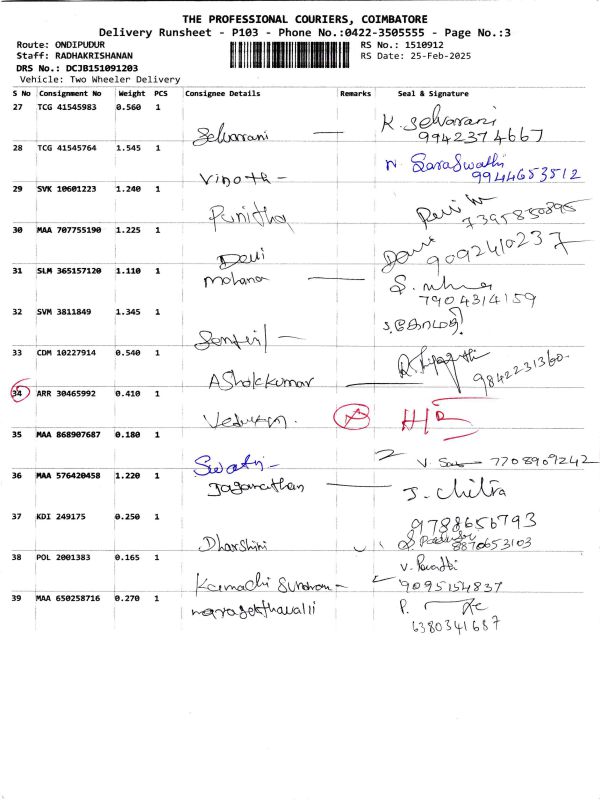 THE PROFESSIONAL COURIERS, COIMBATORE
Delivery Runsheet - P103 - Phone No.:0422-3505555 - Page No.:3
Route: ONDIPUDUR RS No.: 1510912
Staff: RADHAKRISHANAN RS Date: 25-Feb-2025
DRS No.: DCJB151091203
Vehicle: Two Wheeler Delivery
S No Consignment No Weight PCS Consignee Details Remarks Seal & Signature
27 TCG 41545983 0.560 1
Selvarani — K. Selvarani
9942374667
28 TCG 41545764 1.545 1
Vinoth - N. SaraSwathi
9944653512
29 SVK 10601223 1.240 1
Punitha
7395850895
30 MAA 707755190 1.225 1
Devi Devi
9092410237
31 SLM 365157120 1.110 1
Mohana — S.
7904314159
32 SVM 3811849 1.345 1
Senthil - கோமதி
33 CDM 10227914 0.540 1
AShokkumar —
9842231360
34 ARR 30465992 0.410 1
35 MAA 868907687 0.180 1
Swathi - V. 7708909242
36 MAA 576420458 1.220 1
Jaganathan — J. Chitra
37 KDI 249175 0.250 1
9788656793
Dharshini 8870653103
38 POL 2001383 0.165 1
V.
9095154837
39 MAA 650258716 0.270 1
P.
6380341687